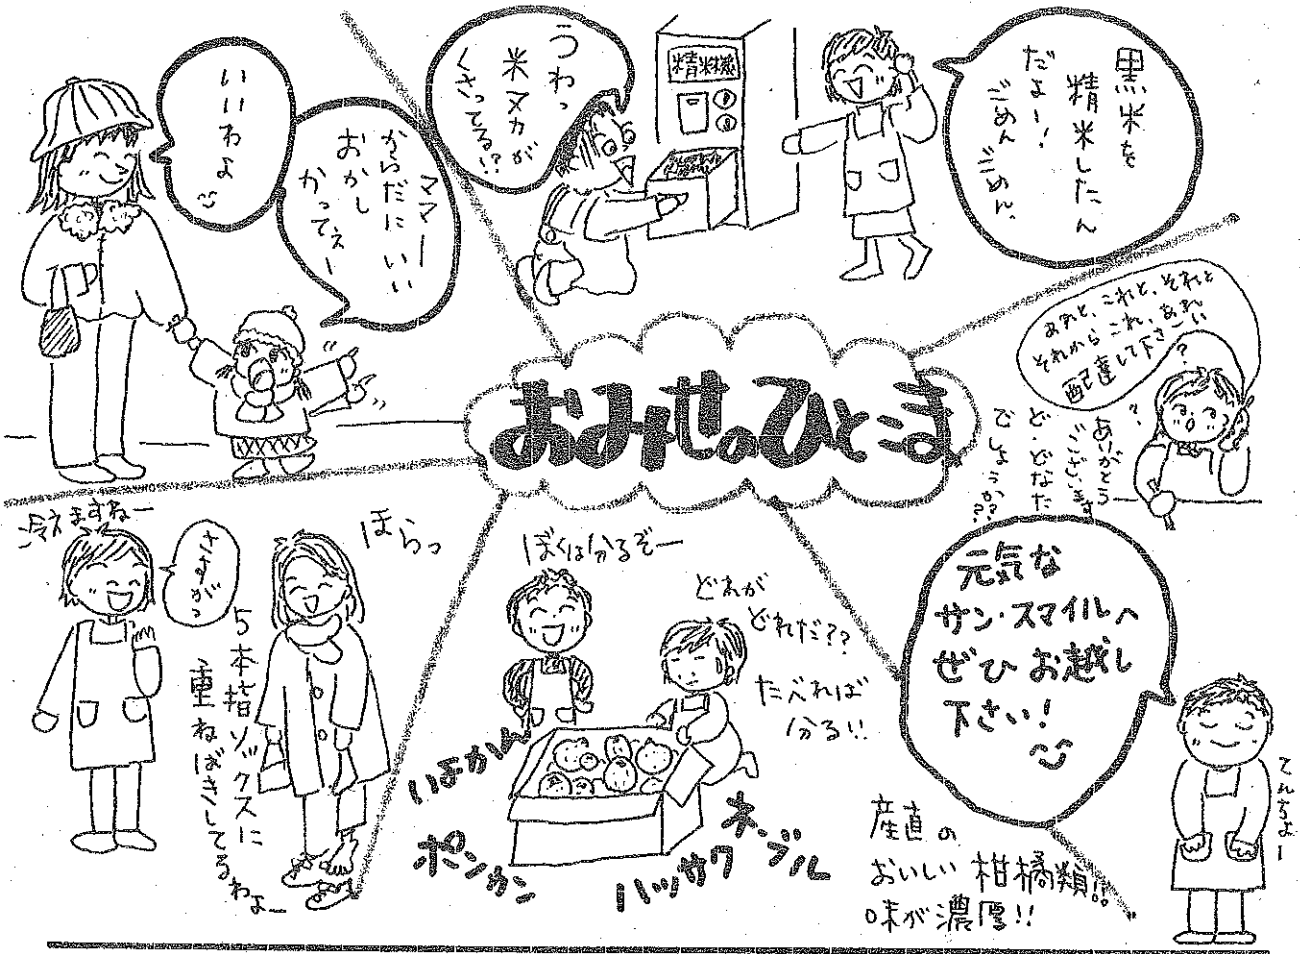 おみせのひとこま
いいわよ
ママー
からだにいい
おかし
かってぇー
うわっ
米ヌカが
くさってる!?
精米機
黒米を
精米したん
だよー!
ごめんごめん、
あれと、これと、それと
それからこれ、あれ
配達して下さーい
?
?
ありがとう
ございます
ど・どなた
でしょうか??
冷えますねー
さすがっ
ほらっ
5本指ソックスに
重ねばきしてるわよー
ぼくは分るぞー
どれが
どれだ??
たべれば
分る!!
いよかん
ポンカン
ハッサク
ネーブル
産直の
おいしい柑橘類!!
味が濃厚!!
元気な
サン・スマイルへ
ぜひお越し
下さい!